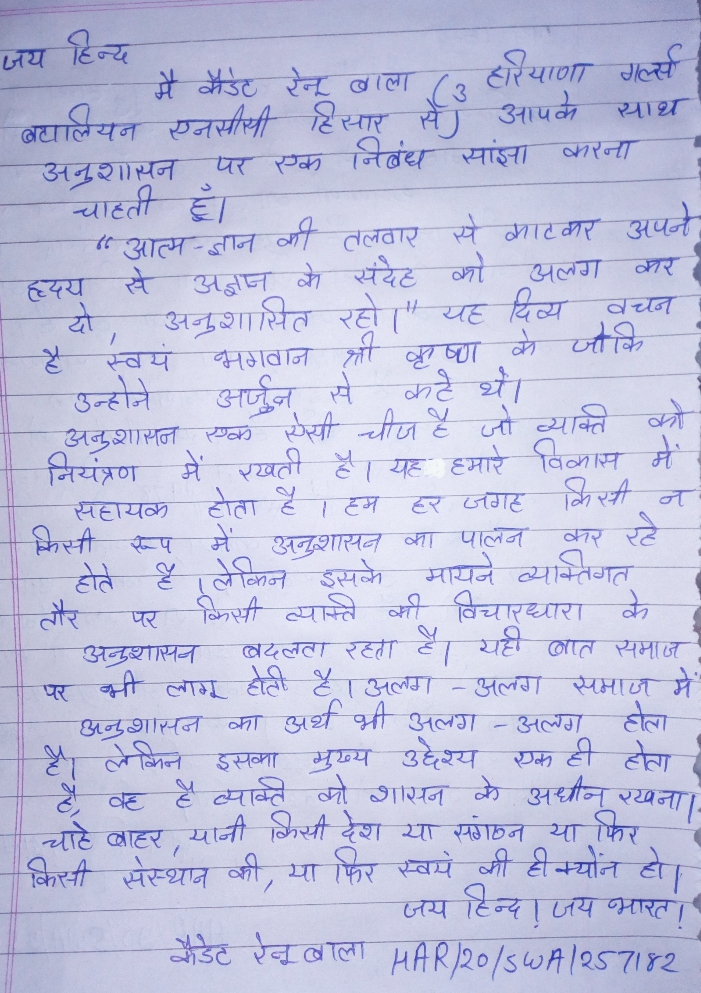 जय हिन्द
मै कैडेट रेनू बाला (3 हरियाणा गर्ल्स
बटालियन एनसीसी हिसार से) आपके साथ
अनुशासन पर एक निबंध सांझा करना
चाहती हूँ।
"आत्म-ज्ञान की तलवार से काटकर अपने
हृदय से अज्ञान के संदेह को अलग कर
दो, अनुशासित रहो।" यह दिव्य वचन
है स्वयं भगवान श्री कृष्ण के जोकि
उन्होने अर्जुन से कहे थे।
अनुशासन एक ऐसी चीज है जो व्यक्ति को
नियंत्रण में रखती है। यह हमारे विकास में
सहायक होता है। हम हर जगह किसी न
किसी रूप में अनुशासन का पालन कर रहे
होते है। लेकिन इसके मायने व्यक्तिगत
तौर पर किसी व्यक्ति की विचारधारा के
अनुशासन बदलता रहता है। यही बात समाज
पर भी लागू होती है। अलग - अलग समाज में
अनुशासन का अर्थ भी अलग - अलग होता
है। लेकिन इसका मुख्य उद्देश्य एक ही होता
है, वह है व्यक्ति को शासन के अधीन रखना।
चाहे बाहर, यानी किसी देश या संगठन या फिर
किसी संस्थान की, या फिर स्वयं की ही क्योंन हो।
जय हिन्द! जय भारत!
कैडेट रेनू बाला HAR/20/SWA/257182